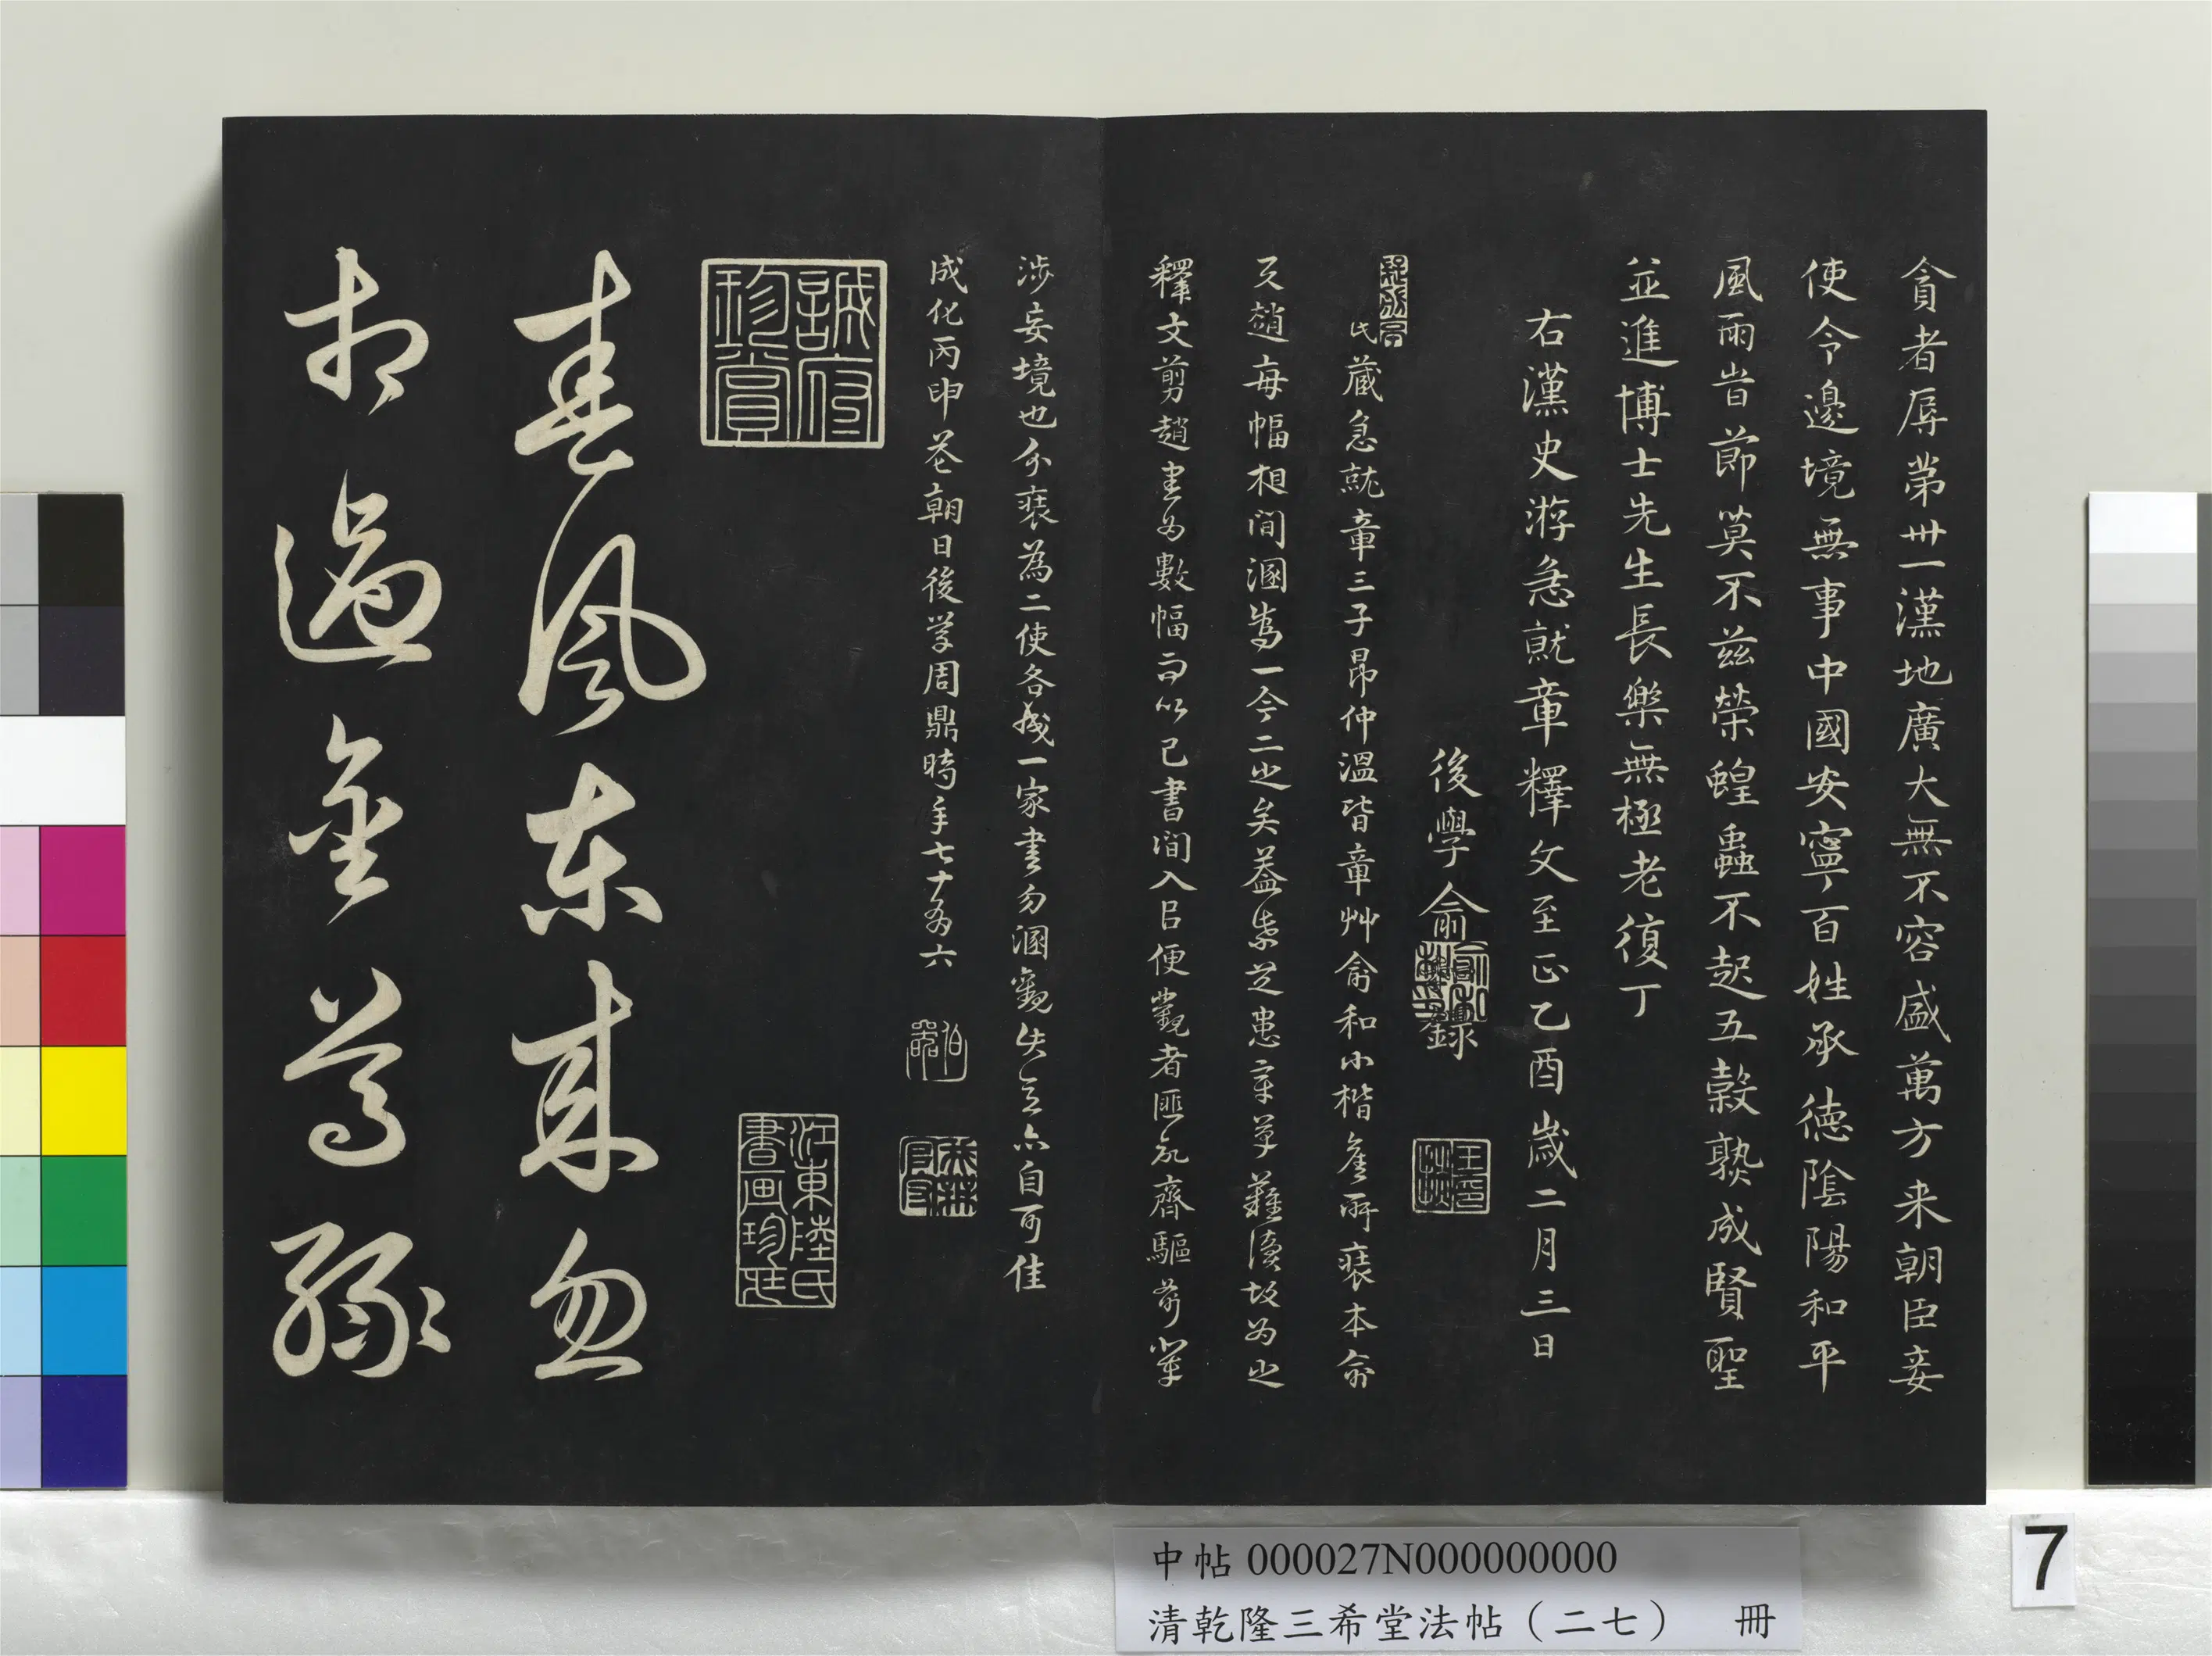 貪者辱第卅一漢地廣大無不容盛萬方来朝臣妾
使令邊境無事中國安寧百姓承德陰陽和平
風雨旹節莫不兹榮蝗蟲不起五穀孰成賢聖
並進博士先生長樂無極老復丁
右漢史游急就章釋文至正乙酉歲二月三日
後學俞和錄
氏蔵急就章三子昂仲溫皆章艸俞和小楷雀所裱本俞
又趙每幅相間溷為一今二之矣葢
釋文剪趙書為數幅而以己書間入臼便觀者匪
涉妄境也分裱為二使各成一家書勿溷觀失之亦自可佳
成化丙申花朝日後学周鼎時年七十有六
誠府珍賞
江東陸氏書画珍藏
春風东来忽
相過金尊緑
中帖 000027N000000000
清乾隆三希堂法帖（二七） 冊
7